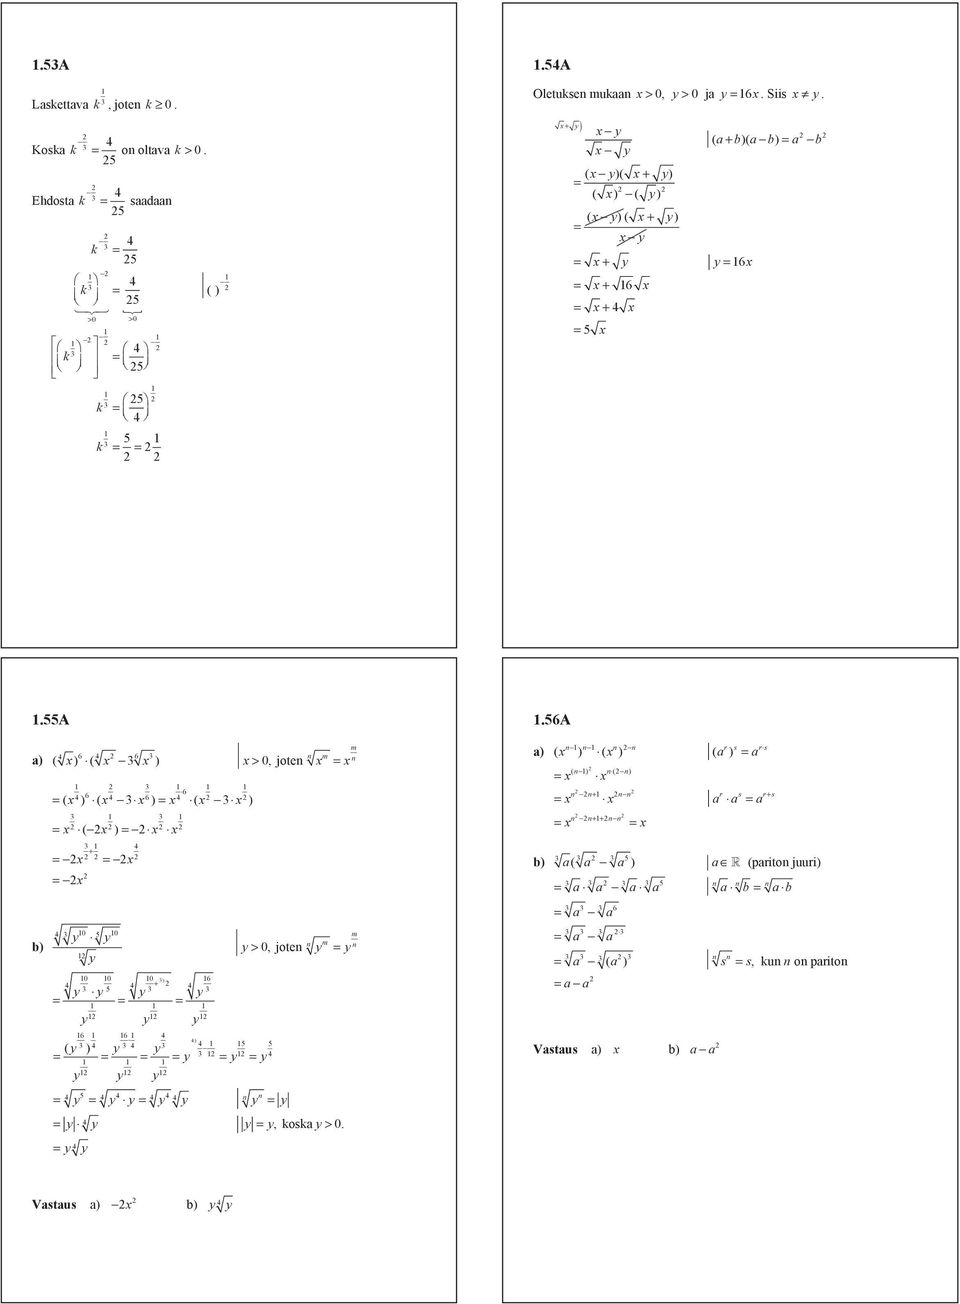 1.53A
Laskettava k^{1/3}, joten k ≥ 0.
Koska k^{-2/3} = 4/25 on oltava k > 0.
Ehdosta k^{-2/3} = 4/25 saadaan
k^{-2/3} = 4/25
(k^{1/3})^{-2} = 4/25 | ( )^{-1/2}
>0 >0
[(k^{1/3})^{-2}]^{-1/2} = (4/25)^{-1/2}
k^{1/3} = (25/4)^{1/2}
k^{1/3} = 5/2 = 2 1/2
1.54A
Oletuksen mukaan x > 0, y > 0 ja y = 16x. Siis x ≠ y.
√x+√y) (x − y)/(√x − √y) | (a + b)(a − b) = a² − b²
= (x − y)(√x + √y)/((√x)² − (√y)²)
= (x − y)(√x + √y)/(x − y)
= √x + √y | y = 16x
= √x + √16 √x
= √x + 4√x
= 5√x
1.55A
a) (⁴√x)⁶ · (⁴√x² − 3⁶√x³) | x > 0, joten ⁿ√x^m = x^{m/n}
= (x^{1/4})⁶ · (x^{2/4} − 3 · x^{3/6}) = x^{1/4·6} · (x^{1/2} − 3 · x^{1/2})
= x^{3/2} · (−2x^{1/2}) = −2 · x^{3/2} · x^{1/2}
= −2x^{3/2+1/2} = −2x^{4/2}
= −2x²
b) ⁴√(³√y¹⁰ · ⁵√y¹⁰)/¹²√y | y > 0, joten ⁿ√y^m = y^{m/n}
= ⁴√(y^{10/3} · y^{10/5})/y^{1/12} = ⁴√(y^{10/3 + ³⁾2})/y^{1/12} = ⁴√(y^{16/3})/y^{1/12}
= (y^{16/3})^{1/4}/y^{1/12} = y^{16/3·1/4}/y^{1/12} = y^{4/3}/y^{1/12} = y^{⁴⁾4/3 − 1/12} = y^{15/12} = y^{5/4}
= ⁴√y⁵ = ⁴√(y⁴ · y) = ⁴√y⁴ ⁴√y | ⁿ√yⁿ = |y|
= |y| · ⁴√y | |y| = y, koska y > 0.
= y⁴√y
Vastaus a) −2x² b) y⁴√y
1.56A
a) (x^{n−1})^{n−1} · (xⁿ)^{2−n} | (a^r)^s = a^{r·s}
= x^{(n−1)²} · x^{n·(2−n)}
= x^{n²−2n+1} · x^{2n−n²} | a^r · a^s = a^{r+s}
= x^{n²−2n+1+2n−n²} = x
b) ³√a(³√a² − ³√a⁵) | a ∈ ℝ (pariton juuri)
= ³√a · ³√a² − ³√a · ³√a⁵ | ⁿ√a · ⁿ√b = ⁿ√(a · b)
= ³√a³ − ³√a⁶
= ³√a³ − ³√a^{2·3}
= ³√a³ − ³√(a²)³ | ⁿ√sⁿ = s, kun n on pariton
= a − a²
Vastaus a) x b) a − a²